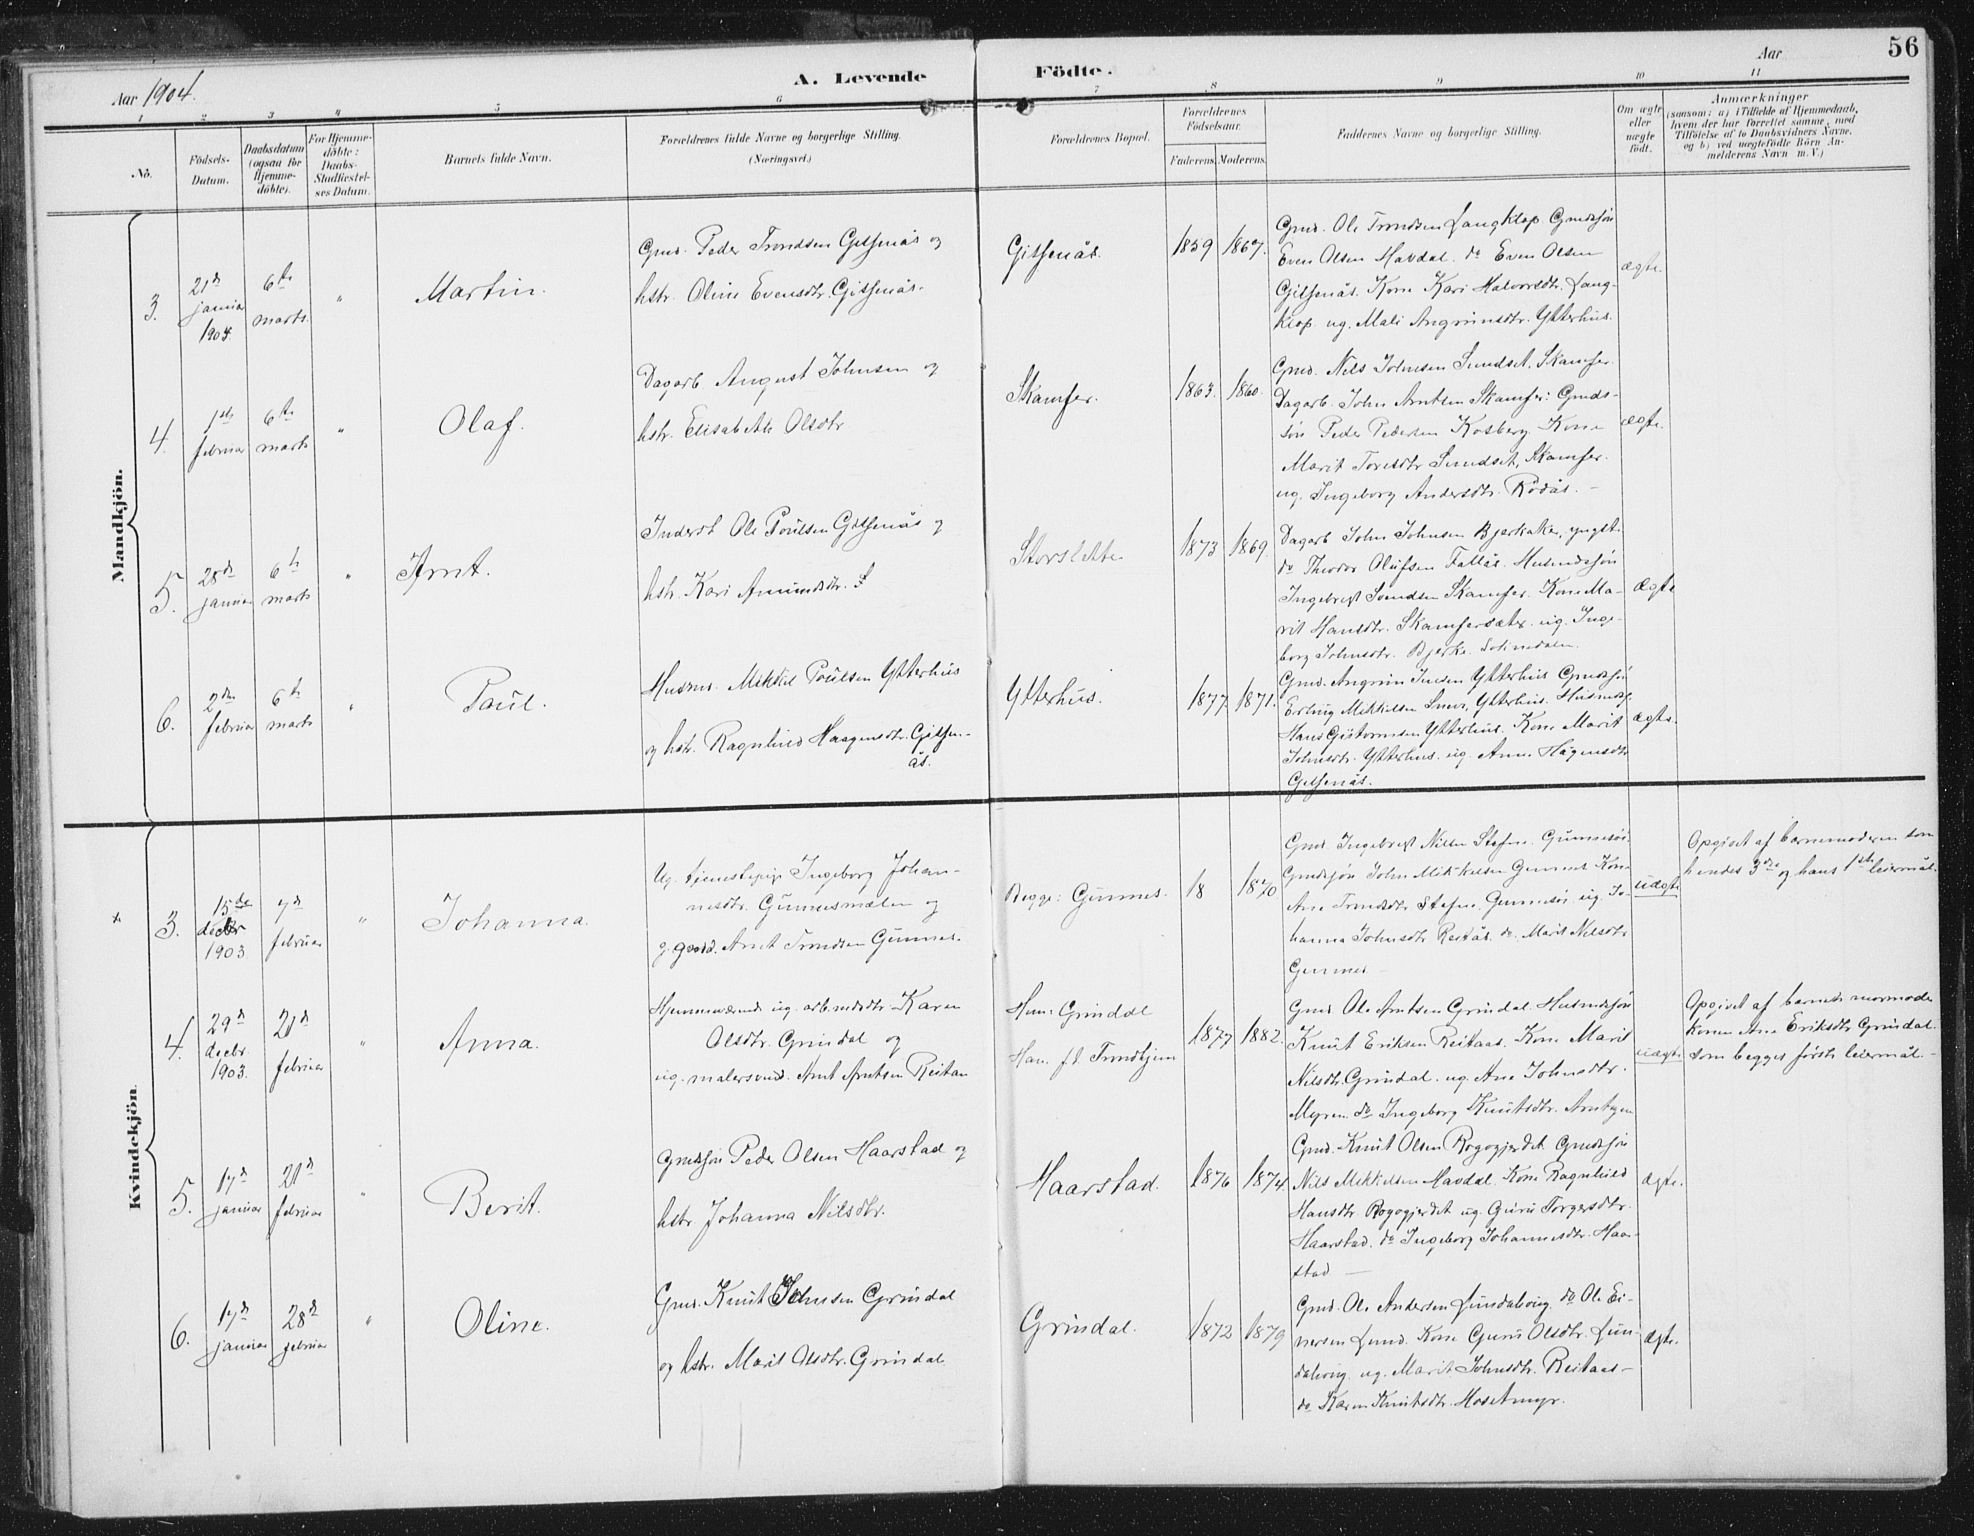 56
Aar 1904.
A. Levende Födte.
Aar
1 2 3 4 5 6 7 8 9 10 11
No.
Födsels-
Datum.
Daabsdatum
(ogsaa for
Hjemme-
döbte).
For Hjemme-
döbte:
Daabs-
Stadfæstel-
ses Datum.
Barnets fulde Navn.
Forældrenes fulde Navne og borgerlige Stilling.
(Næringsvei.)
Forældrenes Bopæl.
Forældrenes
Födselsaar.
Faderens. Moderens.
Faddernes Navne og borgerlige Stilling.
Om ægte
eller
uægte
födt.
Anmærkninger
(saasom: a) i Tilfælde af Hjemmedaab,
hvem der har forrettet samme, med
Tilföielse af to Daabsvidners Navne,
og b) ved uægtefödte Börn An-
melderens Navn m. V.)
Mandkjön.
3.
21de
januar
1904.
6te
marts.
"
Martin.
Gmd. Peder Trondsen Gitsenås og
hstr. Oline Evensdtr. Gitsenås.
Gitsenås.
1859 1867.
Gmd. Ole Trondsen Langklop Gmdssön
Even Olsen Havdal. do Even Olsen
Gitsenås. Kone Kari Halvorsdtr. Lang-
klop. ug. Mali Angrimsdtr. Ytterhus.
ægte.
4.
1ste
februar
6te
marts
"
Olaf.
Dagarb. August Johnsen og
hstr. Elisabeth Olsdtr
Skamfer.
1863. 1860.
Gmd. Nils Johnsen Sundset, Skamfer.
Dagarb. John Arntsen Skamfer: Gmds-
sön Peder Pedersen Kosberg. Kone
Marit Toresdtr Sundset, Skamfer.
ug. Ingeborg Andersdtr. Rödås. –
ægte.
5.
28de
januar
6te
marts
"
Arnt.
Inderst Ole Poulsen Gitsenås og
hstr. Kari Amundsdtr.
Storslette
1873 1869.
Dagarb John Johnsen Bjerkaker, yngst.
do Theodor Olufsen Fallås. Husmdssön
Ingebrigt Svendsen Skamfer. Kone Ma-
rit Hansdtr. Skamfersæter. ug. Inge-
borg Johnsdtr. Bjerke.
Ægte
6.
2den
februar
6te
marts
"
Paul.
Husmd. Mikkel Poulsen Ytterhus
og hstr. Ragnhild Haagensdtr. Gitsen-
ås.
Ytterhus.
1877. 1871.
Gmd. Angrim Ytterhus Gmdssön
Erling Mikkelsen Ytterhus. Husmd.
Hans Ytterhus. Kone Marit
Johnsdtr. Ytterhus. ug. Ane Hågensdtr
Gitsenås.
ægte.
Kvindekjön.
+
3.
15de
decbr
1903
7de
februar
"
Johanna.
Ug. tjenestepige Ingeborg Johan-
nesdtr. Gunnesmælen og
Arnt Trondsen Gunnes.
Begge: Gunnes.
18 1870
Gmd. Ingebrigt Nilsen Stefne. Gunnesöi.
Gmdssön John Mikkelsen Gunnes Kone
Ane Trondsdtr Stefne, Gunnesöi. ug. Jo-
hanna Johnsdtr Reitås. do. Marit Nilsdtr
Gunnes –
uægte
Opgivet af barnemoderen som
hendes 3die og hans 1ste leiermål.
4.
29de
decbr
1903.
21de
februar
"
Anna.
Hjemmeværende ug. arb.mdsdtr. Karen
Olsdtr. Grindal og
ug. malersvend. Arnt Arntsen Reitan
Hun: Grindal
Han f. t. Trondhjem
1877 1882.
Gmd Ole Arntsen Grindal Husmdssön
Knut Eriksen Reitaas. Kone Marit
Nilsdtr. Grindal. ug. Ane Johnsdtr.
Myren. do Ingeborg Knutsdtr.
uægte
Opgivet af barnets mormoder
konen Ane Eriksdtr Grindal
som begges förste leiermål. –
5.
17de
januar
21de
februar
"
Berit.
Gmdssön Peder Olsen Haarstad og
hstr Johanna Nilsdtr.
Haarstad.
1876 1874.
Gmd. Knut Olsen Rogogjerdet Gmdssön
Nils Mikkelsen Havdal. Kone Ragnhild
Hansdtr Rogogjerdet ug. Guru Torgersdtr.
Haarstad. do Ingeborg Johannesdtr. Haar-
stad –
ægte.
6.
17de
januar
28de
februar
"
Oline.
Gmd. Knut Johnsen Grindal
og hstr. Marit Olsdtr. Grindal
Grindal.
1872 1879
Gmd. Ole Andersen Lundalvoug. do Ole Ei-
nersen Lund. Kone Guru Olsdtr. Lun-
dalvoug. ug. Marit Johnsdtr. Reitaas –
do Karen Knutsdtr. Mosetmyr.
Ægte.